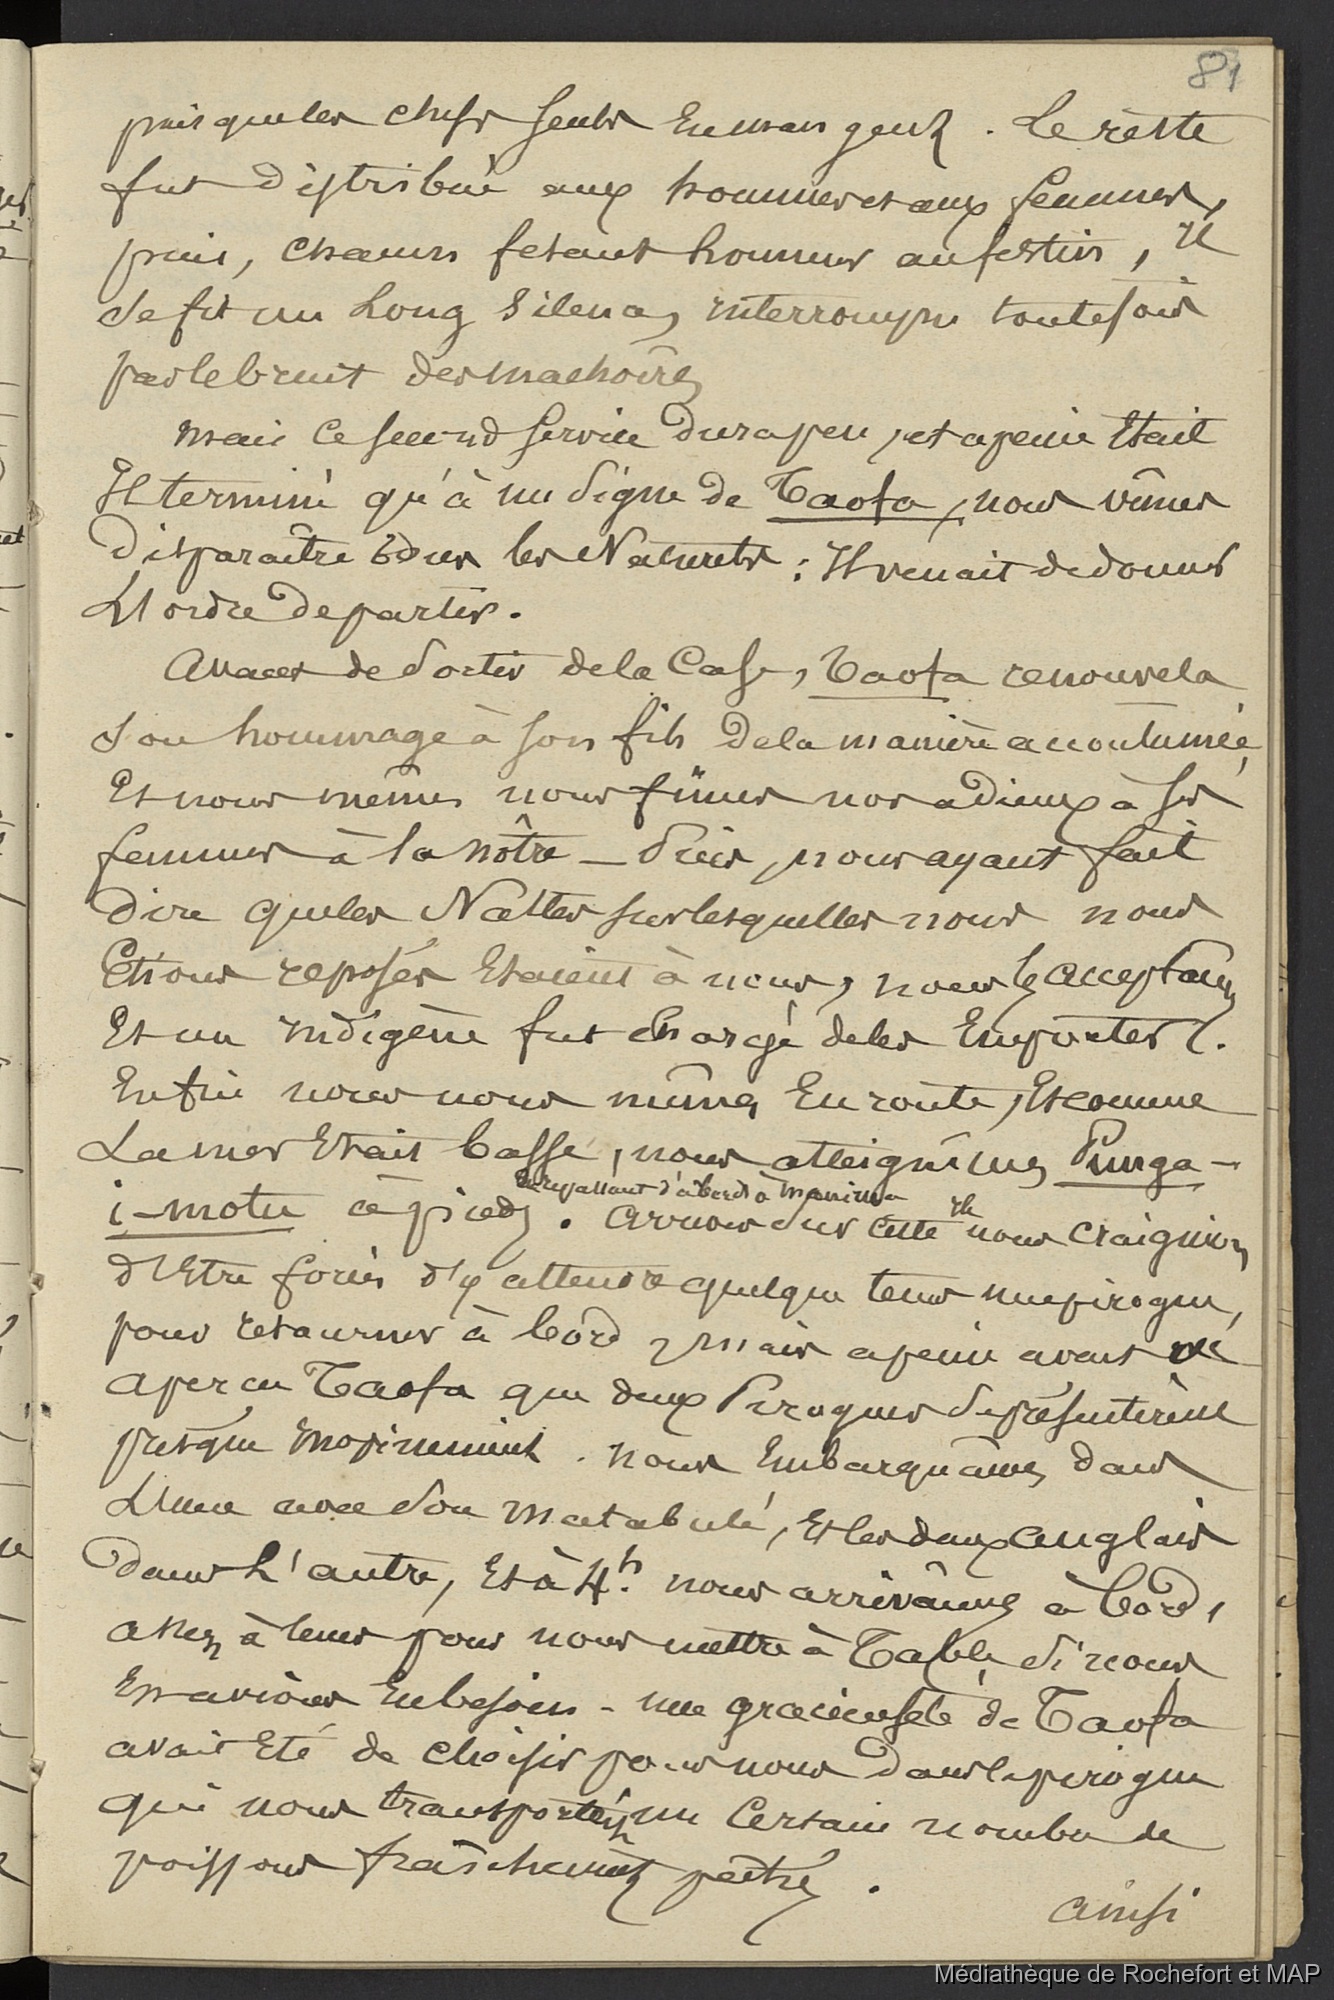 81
puisque les chefs seuls en mangent. Le reste
fut distribué aux hommes et aux femmes,
puis, chacun fesant honneur au festin, il
se fit un long silence, interrompu toutefois
par le bruit des machoires
mais ce second service dura peu, et a peine était
Il terminé qu'à un signe de Taofa, nous vîmes
disparaître tous les Naturels : Il venait de donner
L'ordre de partir.
Avant de sortir de la Case, Taofa renouvela
son hommage à son fils de la manière accoutumée
Et nous mêmes nous fîmes nos adieux à ses
femmes à la nôtre – puis, nous ayant fait
dire que les Nattes sur lesquelles nous nous
Etions reposés Etaient à nous, nous les acceptâmes
Et un indigène fut chargé de les Emporter.
Enfin nous nous mîmes En route, Et comme
La mer Etait basse, nous atteignîmes Punga-
En repassant d'abord à Maninita
i-motu à pieds. Arrivés sur cette ile nous craignions
d'Etre forcés d'y attendre quelque tems une pirogue,
pour retourner à bord, mais a peine avait on
aperçu Taofa que deux Pirogues se présentèrent
presque inopinément. nous Embarquâmes dans
L'une avec son matabulé, Et les deux anglais
dans L'autre, Et à 4h. nous arrivâmes à bord,
assez à tems pour nous mettre à Table si nous
En avions Eu besoin - une gracieuseté de Taofa
avait Eté de choisir pour nous dans la pirogue
qui nous transportait un certain nombre de
poissons fraîchement pêchés.
ainsi
Médiathèque de Rochefort et MAP